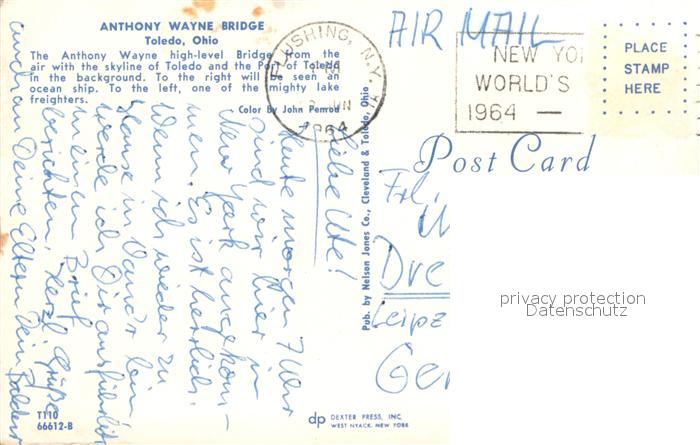 ANTHONY WAYNE BRIDGE
Toledo, Ohio
The Anthony Wayne high-level Bridge from the
air with the skyline of Toledo and the Port of Toledo
in the background. To the right will be seen an
ocean ship. To the left, one of the mighty lake
freighters.
Color By John Penrod
FLUSHING, N.Y.
JUN
1964
AIR MAIL
NEW YO
WORLD'S
1964 —
PLACE
STAMP
HERE
Post Card
Frl.
U
Dre
Leipz
Ger
Liebe Ute!
Heute morgen 7 Uhr
sind wir hier in
New York angekom-
men. Es ist herrlich.
Wenn ich wieder zu
Hause in bin
werde ich Dir ausführlich
in einem Brief
berichten. Herzl. Grüße
auch an Deine Eltern Dein
Pub. by Nelson Jones Co., Cleveland & Toledo, Ohio
privacy protection
Datenschutz
T110
66612-B
dp DEXTER PRESS, INC.
WEST NYACK, NEW YORK